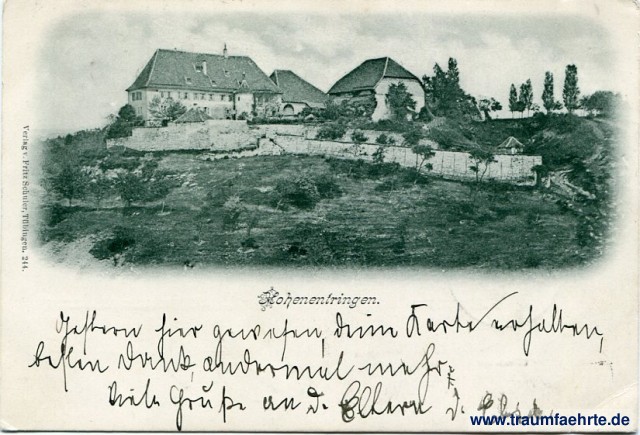 Verlag v. Fritz Schuler, Tübingen. 244.
Hohenentringen.
Gestern hier gewesen, deine Karte erhalten,
besten Dank, andermal mehr.
Viele Grüße an d. Eltern d.
www.traumfaehrte.de